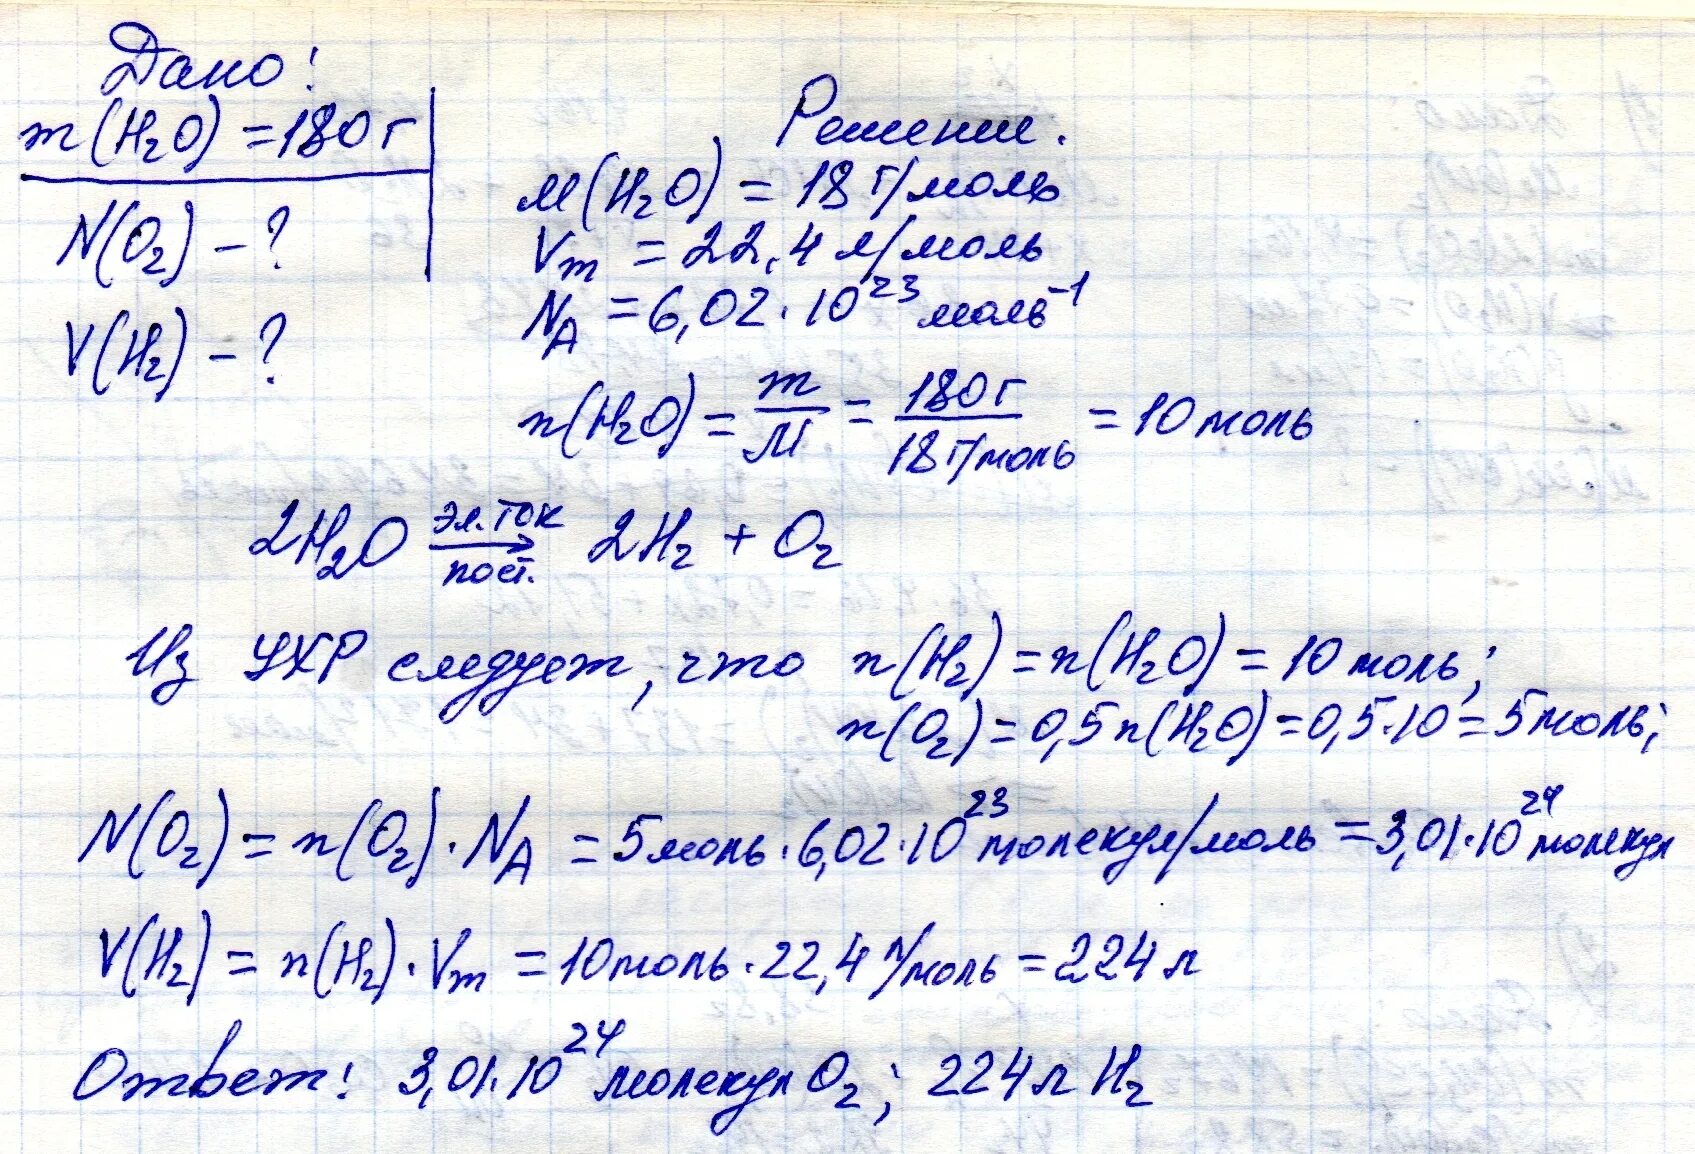 Дано:
m(H₂O) = 180 г
N(O₂) – ?
V(H₂) – ?
Решение.
M(H₂O) = 18 г/моль
Vm = 22,4 л/моль
N_A = 6,02·10²³ моль⁻¹
n(H₂O) = m/M = 180 г/18 г/моль = 10 моль
2H₂O эл.ток → пост. 2H₂ + O₂
Из УХР следует, что n(H₂) = n(H₂O) = 10 моль;
n(O₂) = 0,5n(H₂O) = 0,5·10 = 5 моль;
N(O₂) = n(O₂)·N_A = 5 моль·6,02·10²³ молекул/моль = 3,01·10²⁴ молекул
V(H₂) = n(H₂)·Vm = 10 моль·22,4 л/моль = 224 л
Ответ: 3,01·10²⁴ молекул O₂; 224 л H₂